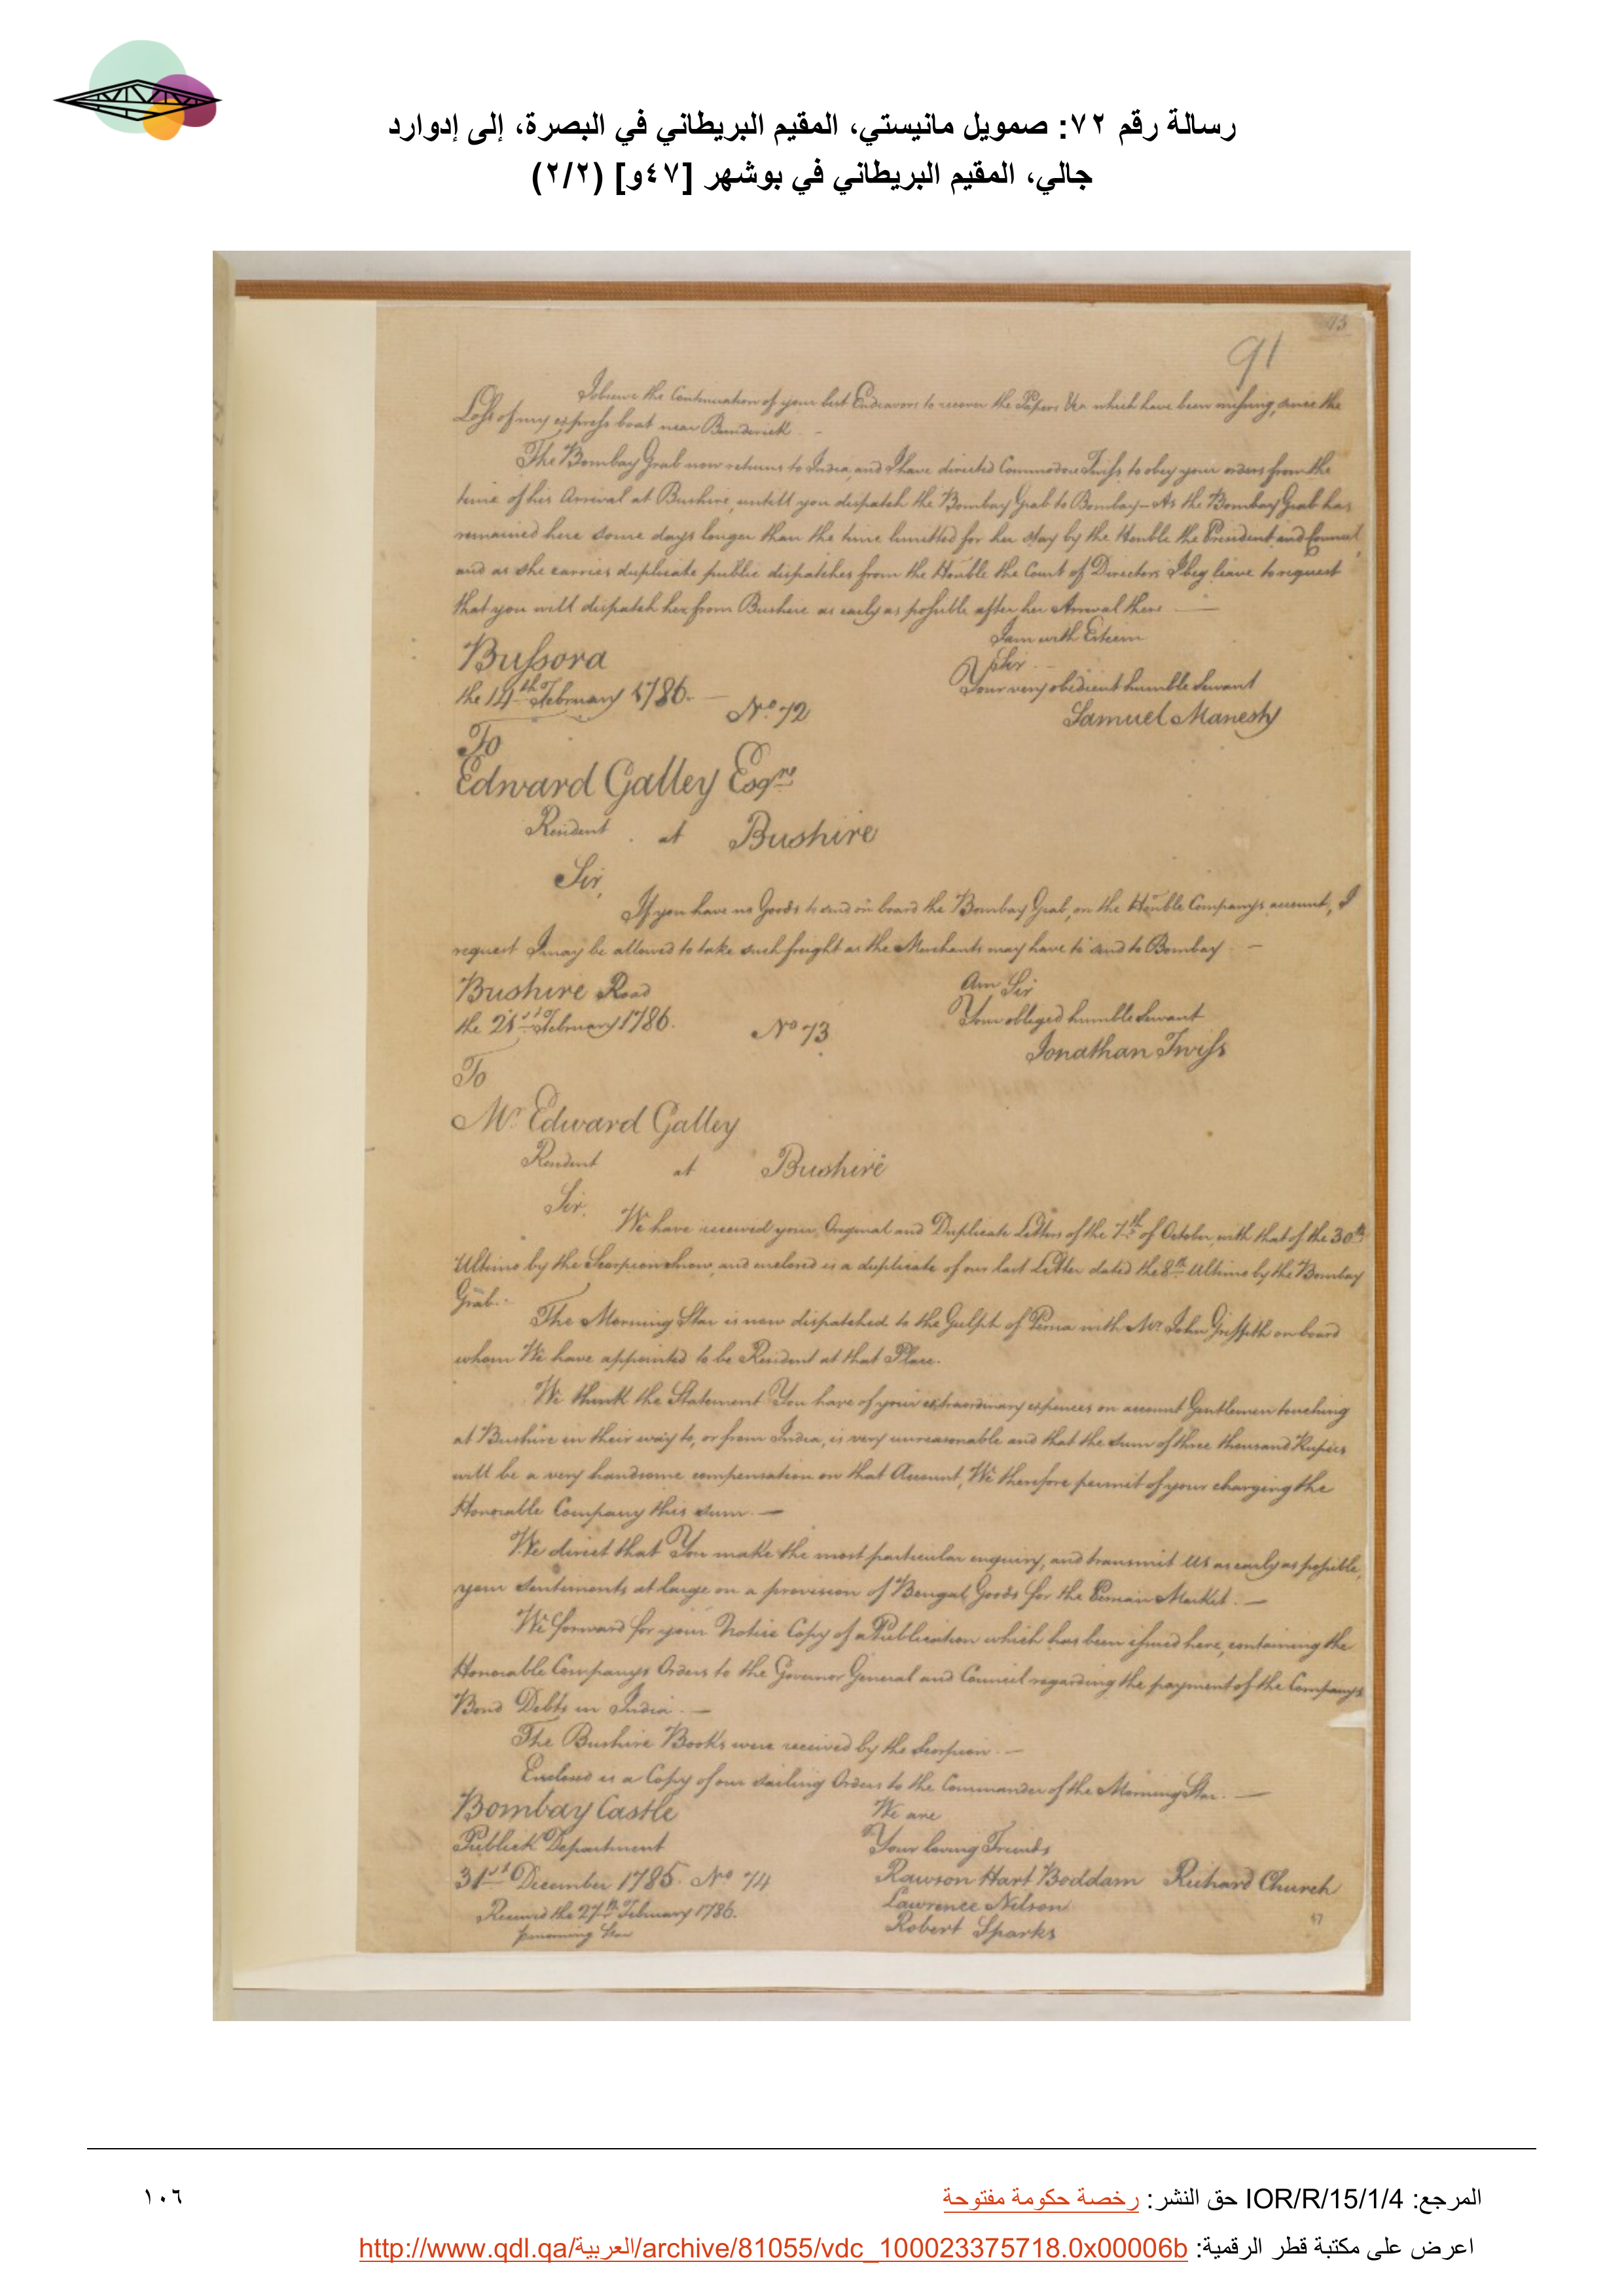 رسالة رقم ٧٢: صمويل مانيستي، المقيم البريطاني في البصرة، إلى إدوارد
جالي، المقيم البريطاني في بوشهر [٤٧و] (٢/٢)
91
I observe the Continuation of your best Endeavors to recover the Papers &ca which have been missing, since the
Loss of my express boat near Bunderick. –
The Bombay Grab now returns to India, and I have directed Commodore Twiss to obey your orders from the
time of his Arrival at Bushire, untill you dispatch the Bombay Grab to Bombay – As the Bombay Grab has
remained here some days longer than the time limitted for her stay by the Honble the President and Council,
and as she carries duplicate public dispatches from the Honble the Court of Directors I beg leave to request
that you will dispatch her from Bushire as early as possible after her Arrival there —
I am with Esteem
Sir –
Bussora
Your very obedient humble Servant
the 14th February 1786. –
No. 72
Samuel Manesty
To
Edward Galley Esqre
Resident at Bushire
Sir,
If you have no Goods to send on board the Bombay Grab, on the Honble Companys account, I
request I may be allowed to take such freight as the Merchants may have to send to Bombay. –
Bushire Road
Am Sir
the 21st February 1786.
Your obliged humble Servant
No 73
Jonathan Twiss
To
Mr Edward Galley
Resident at Bushire
Sir.
We have received your Original and Duplicate Letters of the 7th of October, with that of the 30th
Ultimo by the Scorpion Snow, and enclosed is a duplicate of our last Letter dated the 8th Ultimo by the Bombay
Grab. –
The Morning Star is now dispatched to the Gulph of Persia with Mr John Griffith on board
whom We have appointed to be Resident at that Place.
We think the Statement You have of your extraordinary expences on account Gentlemen touching
at Bushire in their way to, or from India, is very unreasonable and that the sum of three thousand Rupees
will be a very handsome compensation on that Account, We therefore permit of your charging the
Honorable Company this sum. —
We direct that You make the most particular enquiry, and transmit us as early as possible,
your sentiments at large on a provision of Bengal Goods for the Persian Market. —
We forward for your Notice Copy of a Publication which has been issued here, containing the
Honorable Companys Orders to the Governor General and Council regarding the payment of the Companys
Bond Debts in India. —
The Bushire Books were received by the Scorpion. —
Enclosed is a Copy of our sailing Orders to the Commander of the Morning Star. —
Bombay Castle
We are
Publick Department
Your loving Friends
31st December 1785. No 74
Rawson Hart Boddam Richard Church
Lawrence Nilson
Received the 27th February 1786.
Robert Sparks
47
المرجع: IOR/R/15/1/4 حق النشر: رخصة حكومة مفتوحة
١٠٦
اعرض على مكتبة قطر الرقمية: http://www.qdl.qa/العربية/archive/81055/vdc_100023375718.0x00006b